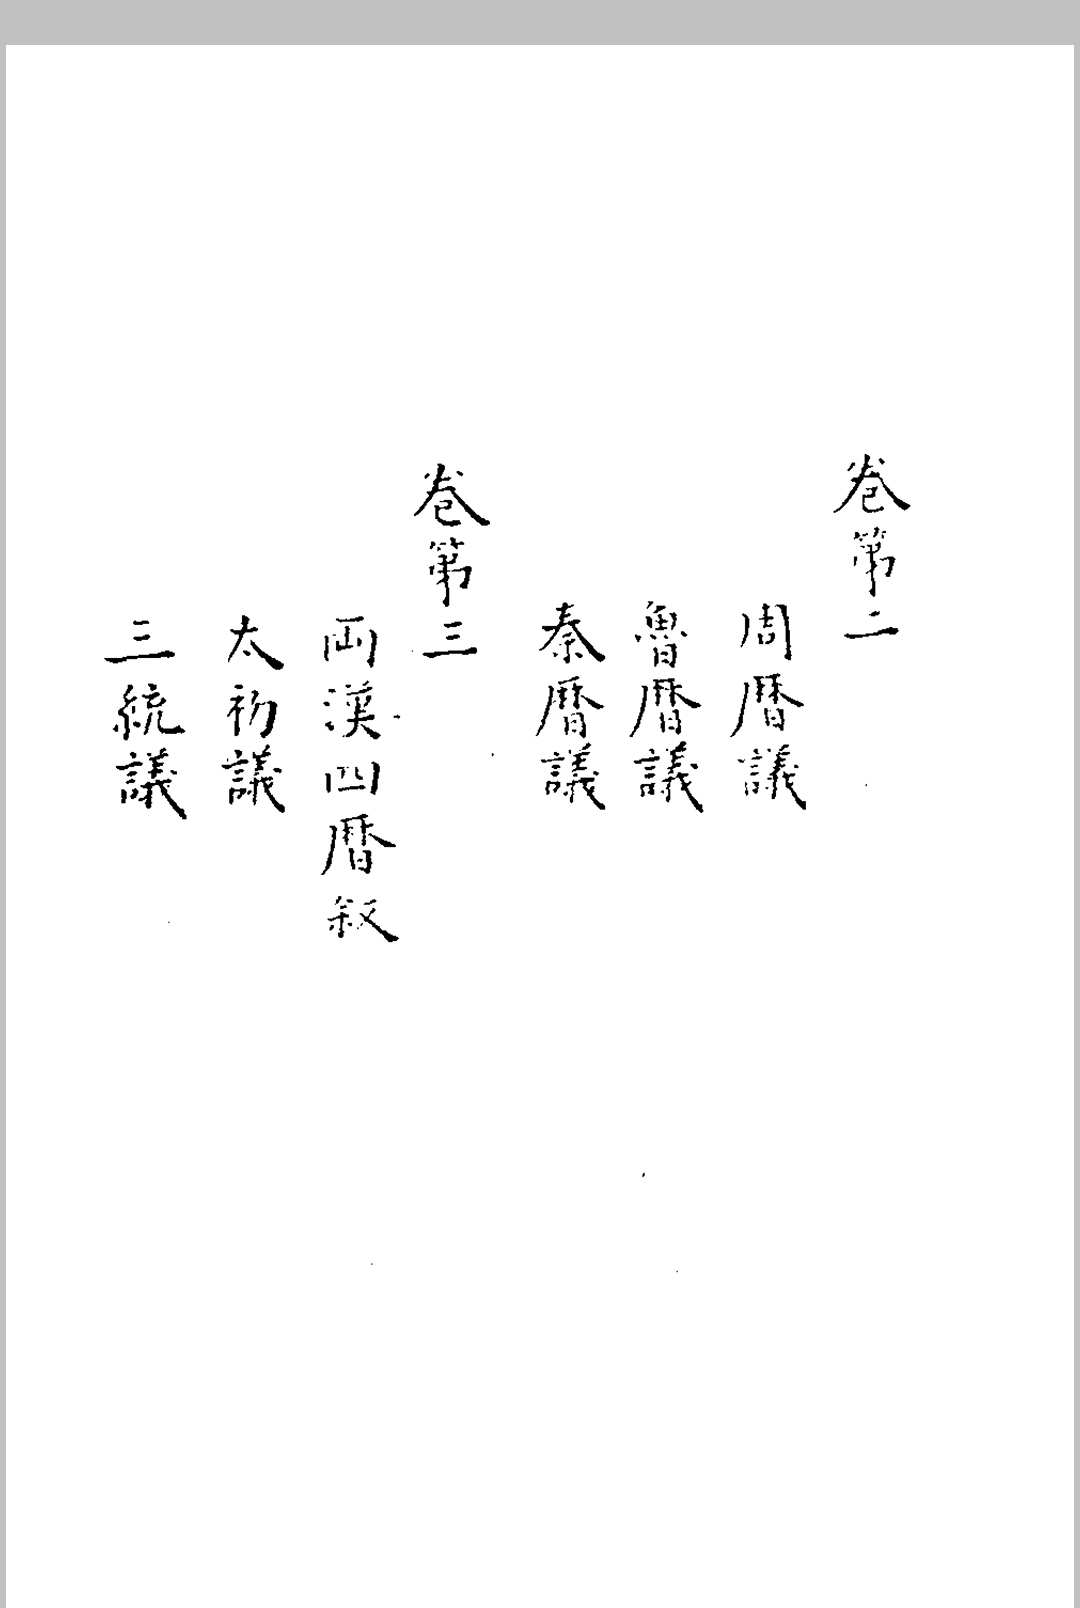 卷第二
周暦議
魯暦議
秦暦議
卷第三
両漢四暦叙
太初議
三統議